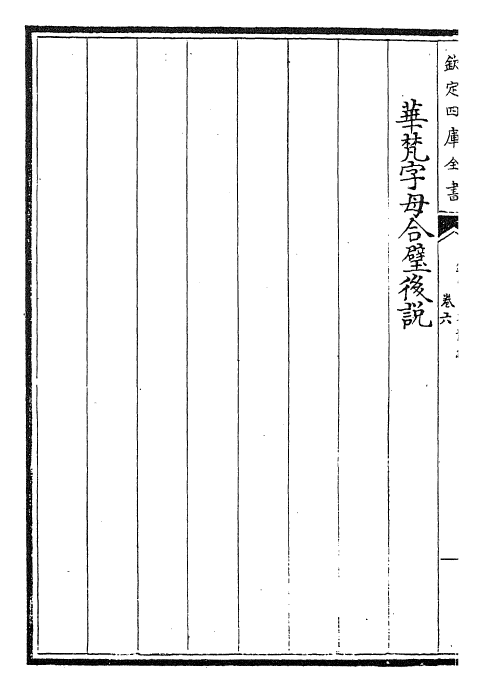 欽定四庫全書
卷六
華梵字母合璧後説